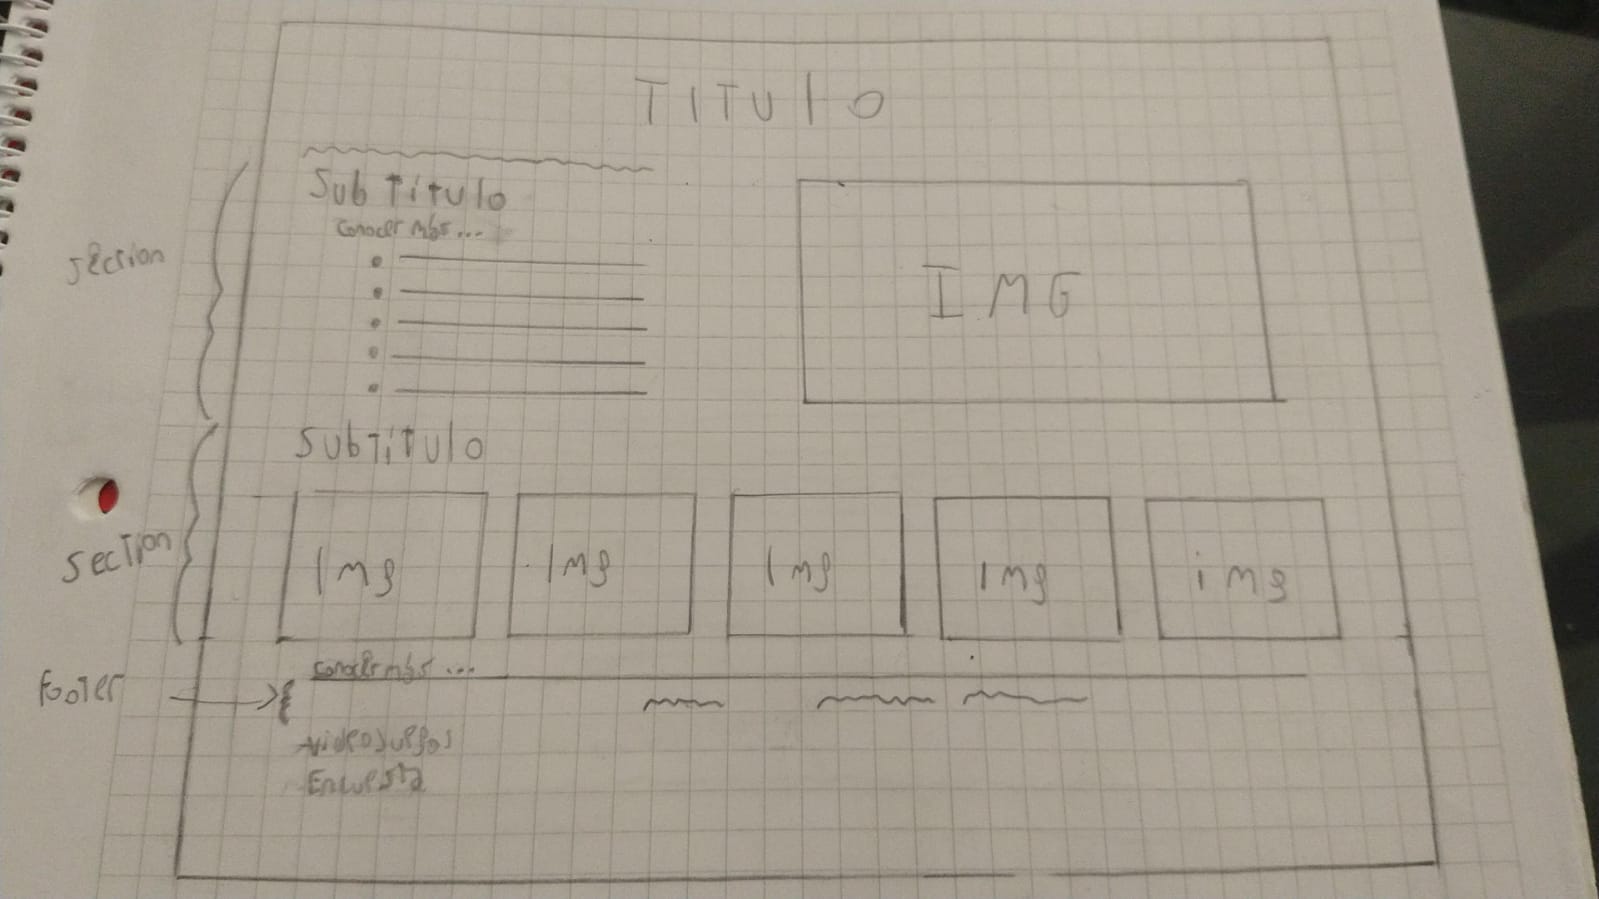 TITUlO
SubTítulo
conocer más...
section
IMG
SubTítulo
Img
Img
Img
Img
img
section
conocer más...
footer
videojuegos
Encuesta